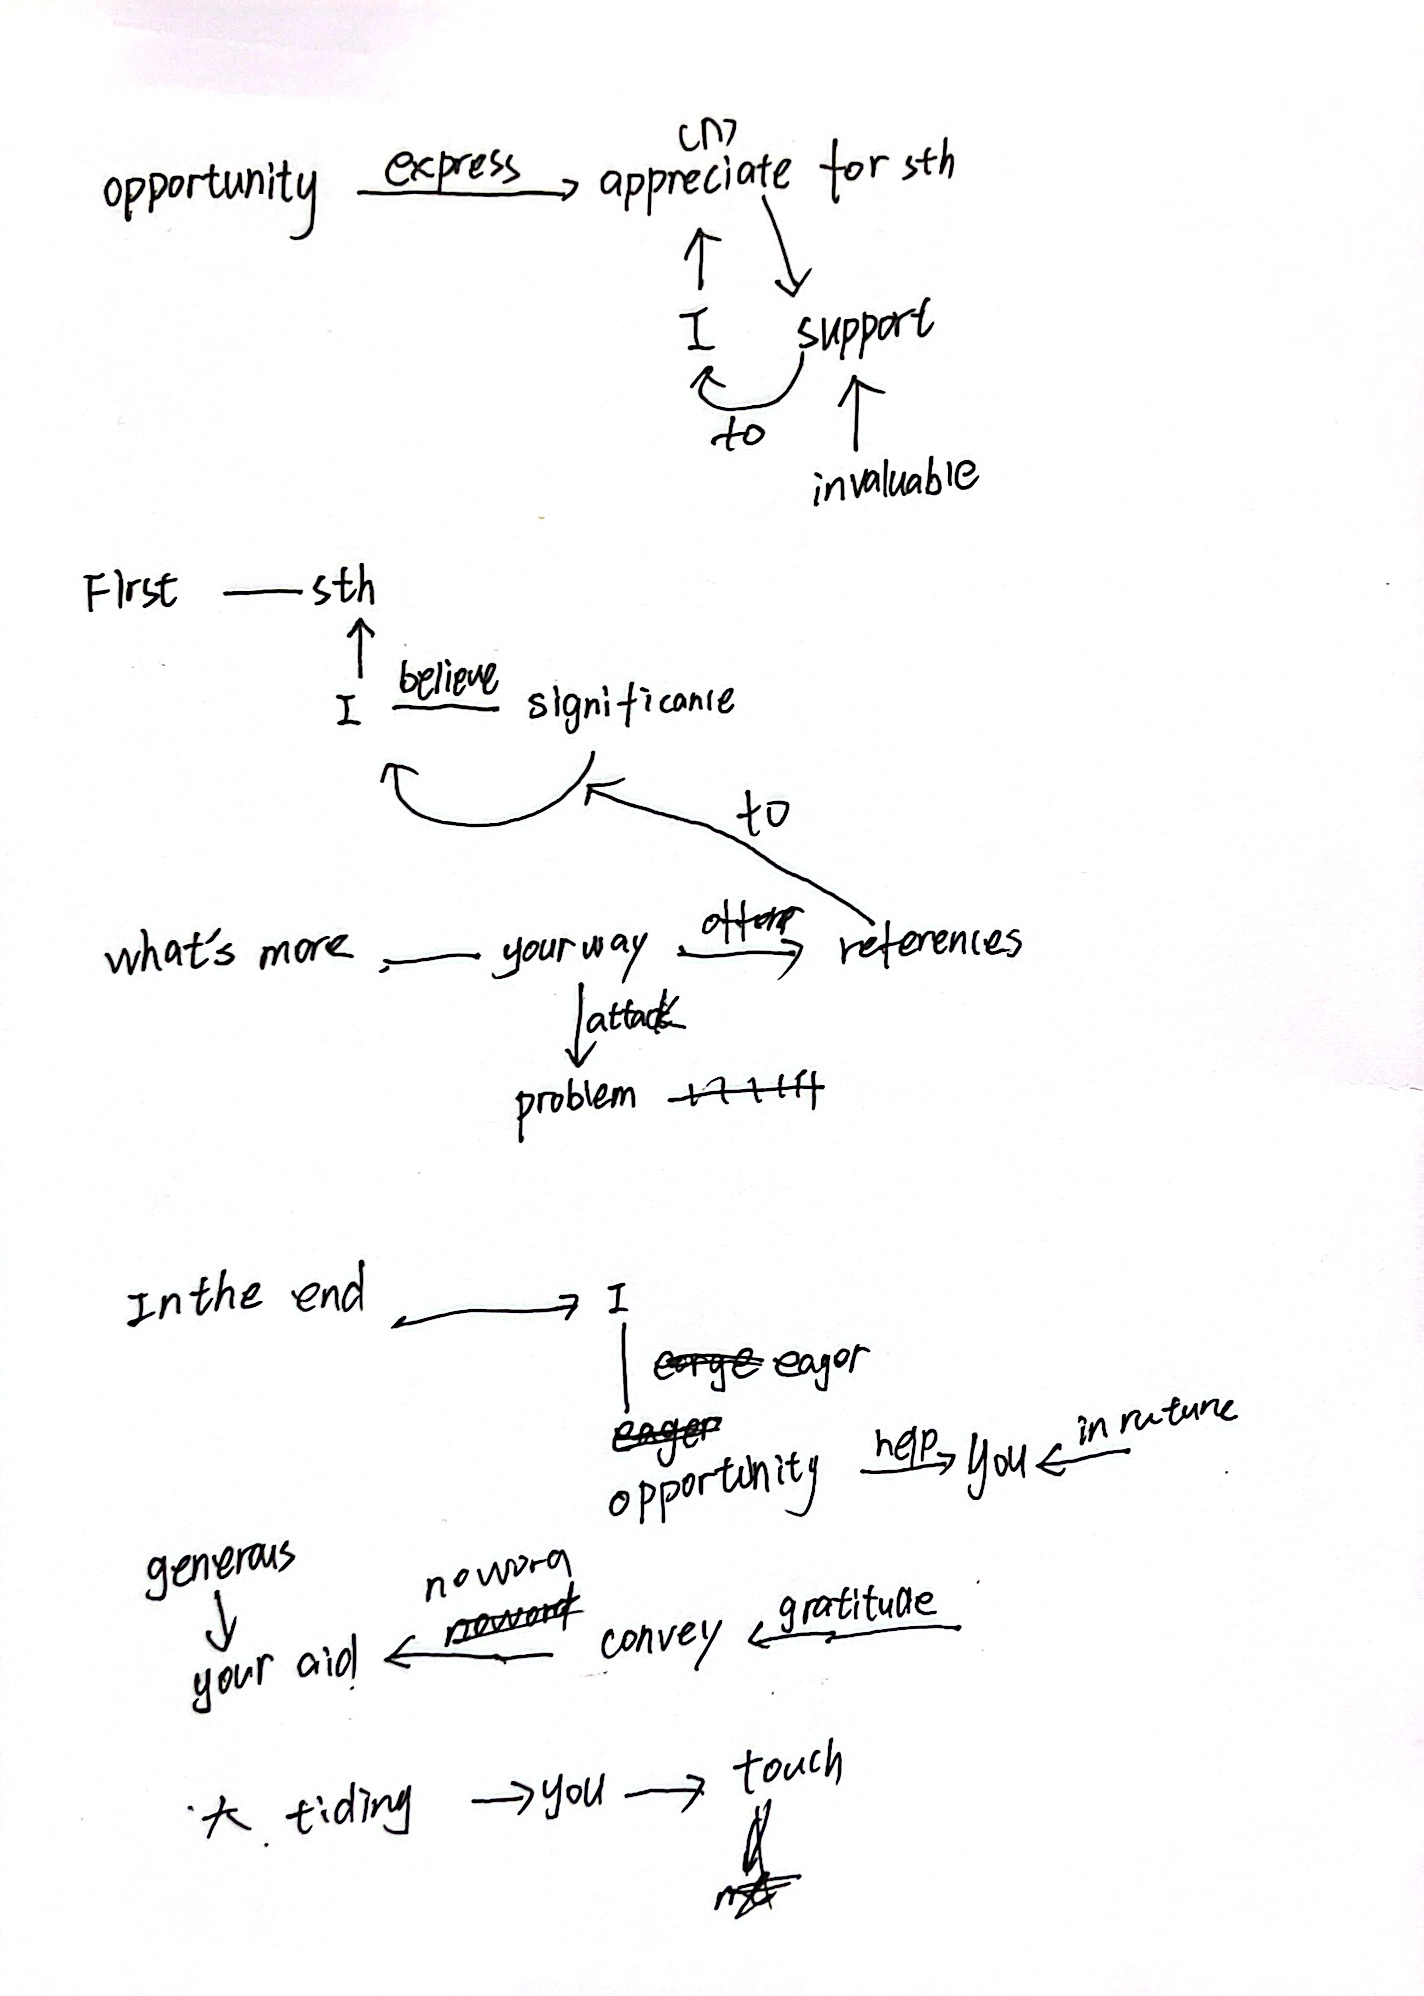 (n)
opportunity express appreciate for sth
I support
to
invaluable
First sth
I believe significance
to
what's more, your way references
attack
problem
In the end I
eager
opportunity help you in future
generous
no word
your aid convey gratitude
大 tiding you touch